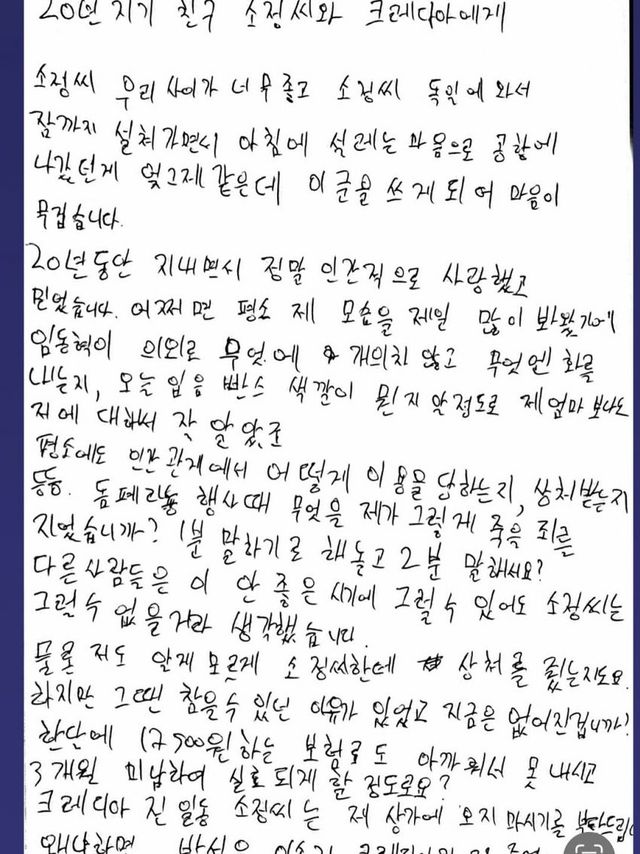 20년 지기 친구 소정씨와 크레디아에게
소정씨 우리 사이가 너무 좋고 소정씨 독일에 와서
잠까지 설쳐가면서 아침에 설레는 마음으로 공항에
나갔던게 엊그제 같은데 이 글을 쓰게 되어 마음이
무겁습니다.
20년동안 지내면서 정말 인간적으로 사랑했고
믿었습니다. 어쩌면 평소 제 모습을 제일 많이 봐왔기에
임동혁이 의외로 무엇에 개의치 않고 무엇엔 화를
내는지, 오늘 입은 빤스 색깔이 뭔지 알정도로 제 엄마 보나도
저에 대해서 잘 알았죠
평소에도 인간관계에서 어떻게 이용을 당하는지, 상처받는지
등등. 돔페라 행사때 무엇을 제가 그렇게 죽을 죄를
지었습니까? 1분 말하기로 해놓고 2분 말해서요?
다른사람들은 이 안 좋은 시기에 그럴수 있어도 소정씨는
그럴수 없을거라 생각했습니다
물론 저도 알게 모르게 소정씨한테 상처를 줬는지도요.
하지만 그땐 참을수 있던 이유가 있었고 지금은 없어진겁니까?
한단에 17900원하는 보험료도 아까워서 못 내시고
3개월 미납하여 실효되게 할 정도로요?
크레디아 진 일동 소정씨는 제 상가에 오지 마시기를 부탁드립
왜냐하면